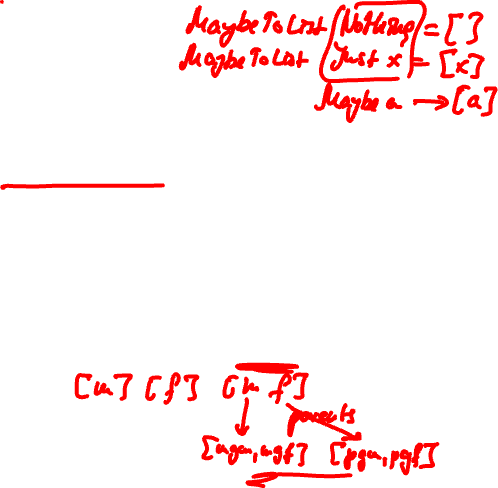 MaybeToList (Nothing) = []
MaybeToList (Just x) = [x]
Maybe a → [a]
[m] [f] [m f]
parents
[mgm, mgf] [pgm, pgf]